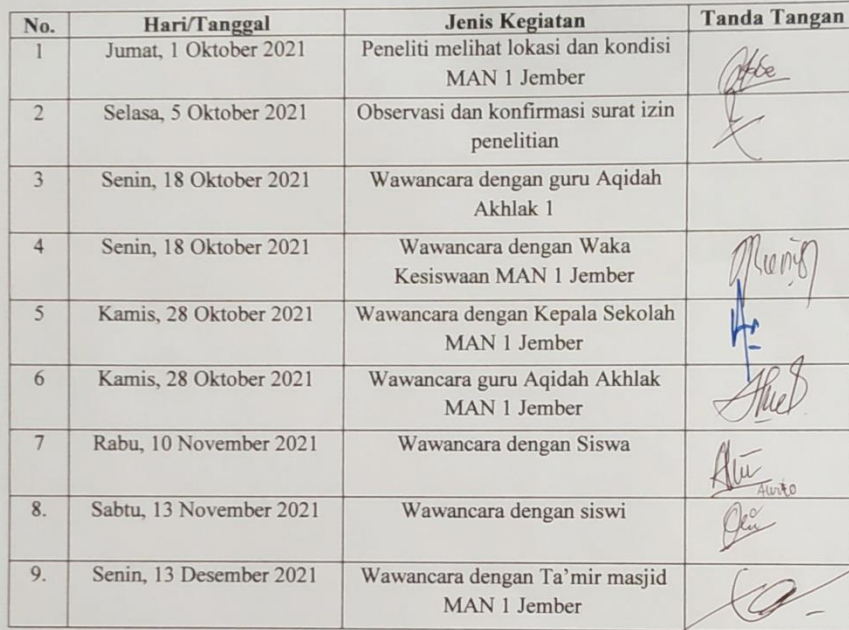 No. Hari/Tanggal Jenis Kegiatan Tanda Tangan
1 Jumat, 1 Oktober 2021 Peneliti melihat lokasi dan kondisi
MAN 1 Jember
2 Selasa, 5 Oktober 2021 Observasi dan konfirmasi surat izin
penelitian
3 Senin, 18 Oktober 2021 Wawancara dengan guru Aqidah
Akhlak 1
4 Senin, 18 Oktober 2021 Wawancara dengan Waka
Kesiswaan MAN 1 Jember
5 Kamis, 28 Oktober 2021 Wawancara dengan Kepala Sekolah
MAN 1 Jember
6 Kamis, 28 Oktober 2021 Wawancara guru Aqidah Akhlak
MAN 1 Jember
7 Rabu, 10 November 2021 Wawancara dengan Siswa
8. Sabtu, 13 November 2021 Wawancara dengan siswi
9. Senin, 13 Desember 2021 Wawancara dengan Ta’mir masjid
MAN 1 Jember